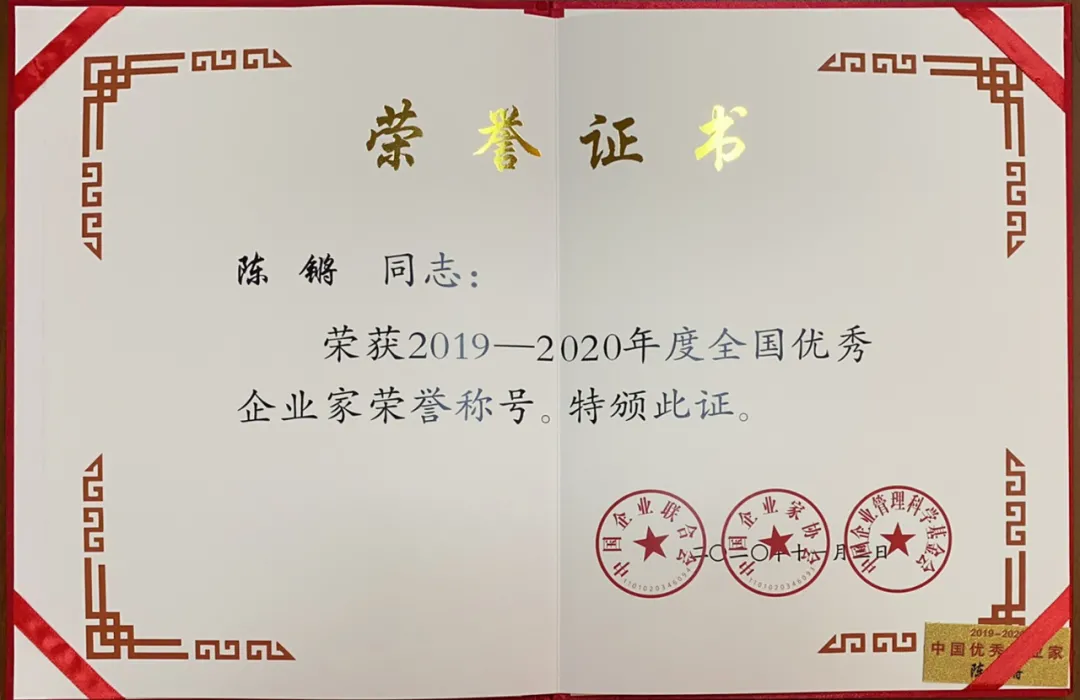 荣誉证书
陈锵 同志：
荣获2019—2020年度全国优秀
企业家荣誉称号。特颁此证。
中国企业联合会
1101020346094
中国企业家协会
中国企业管理科学基金会
二〇二〇年十一月 日
2019-202
中国优秀 业家
陈